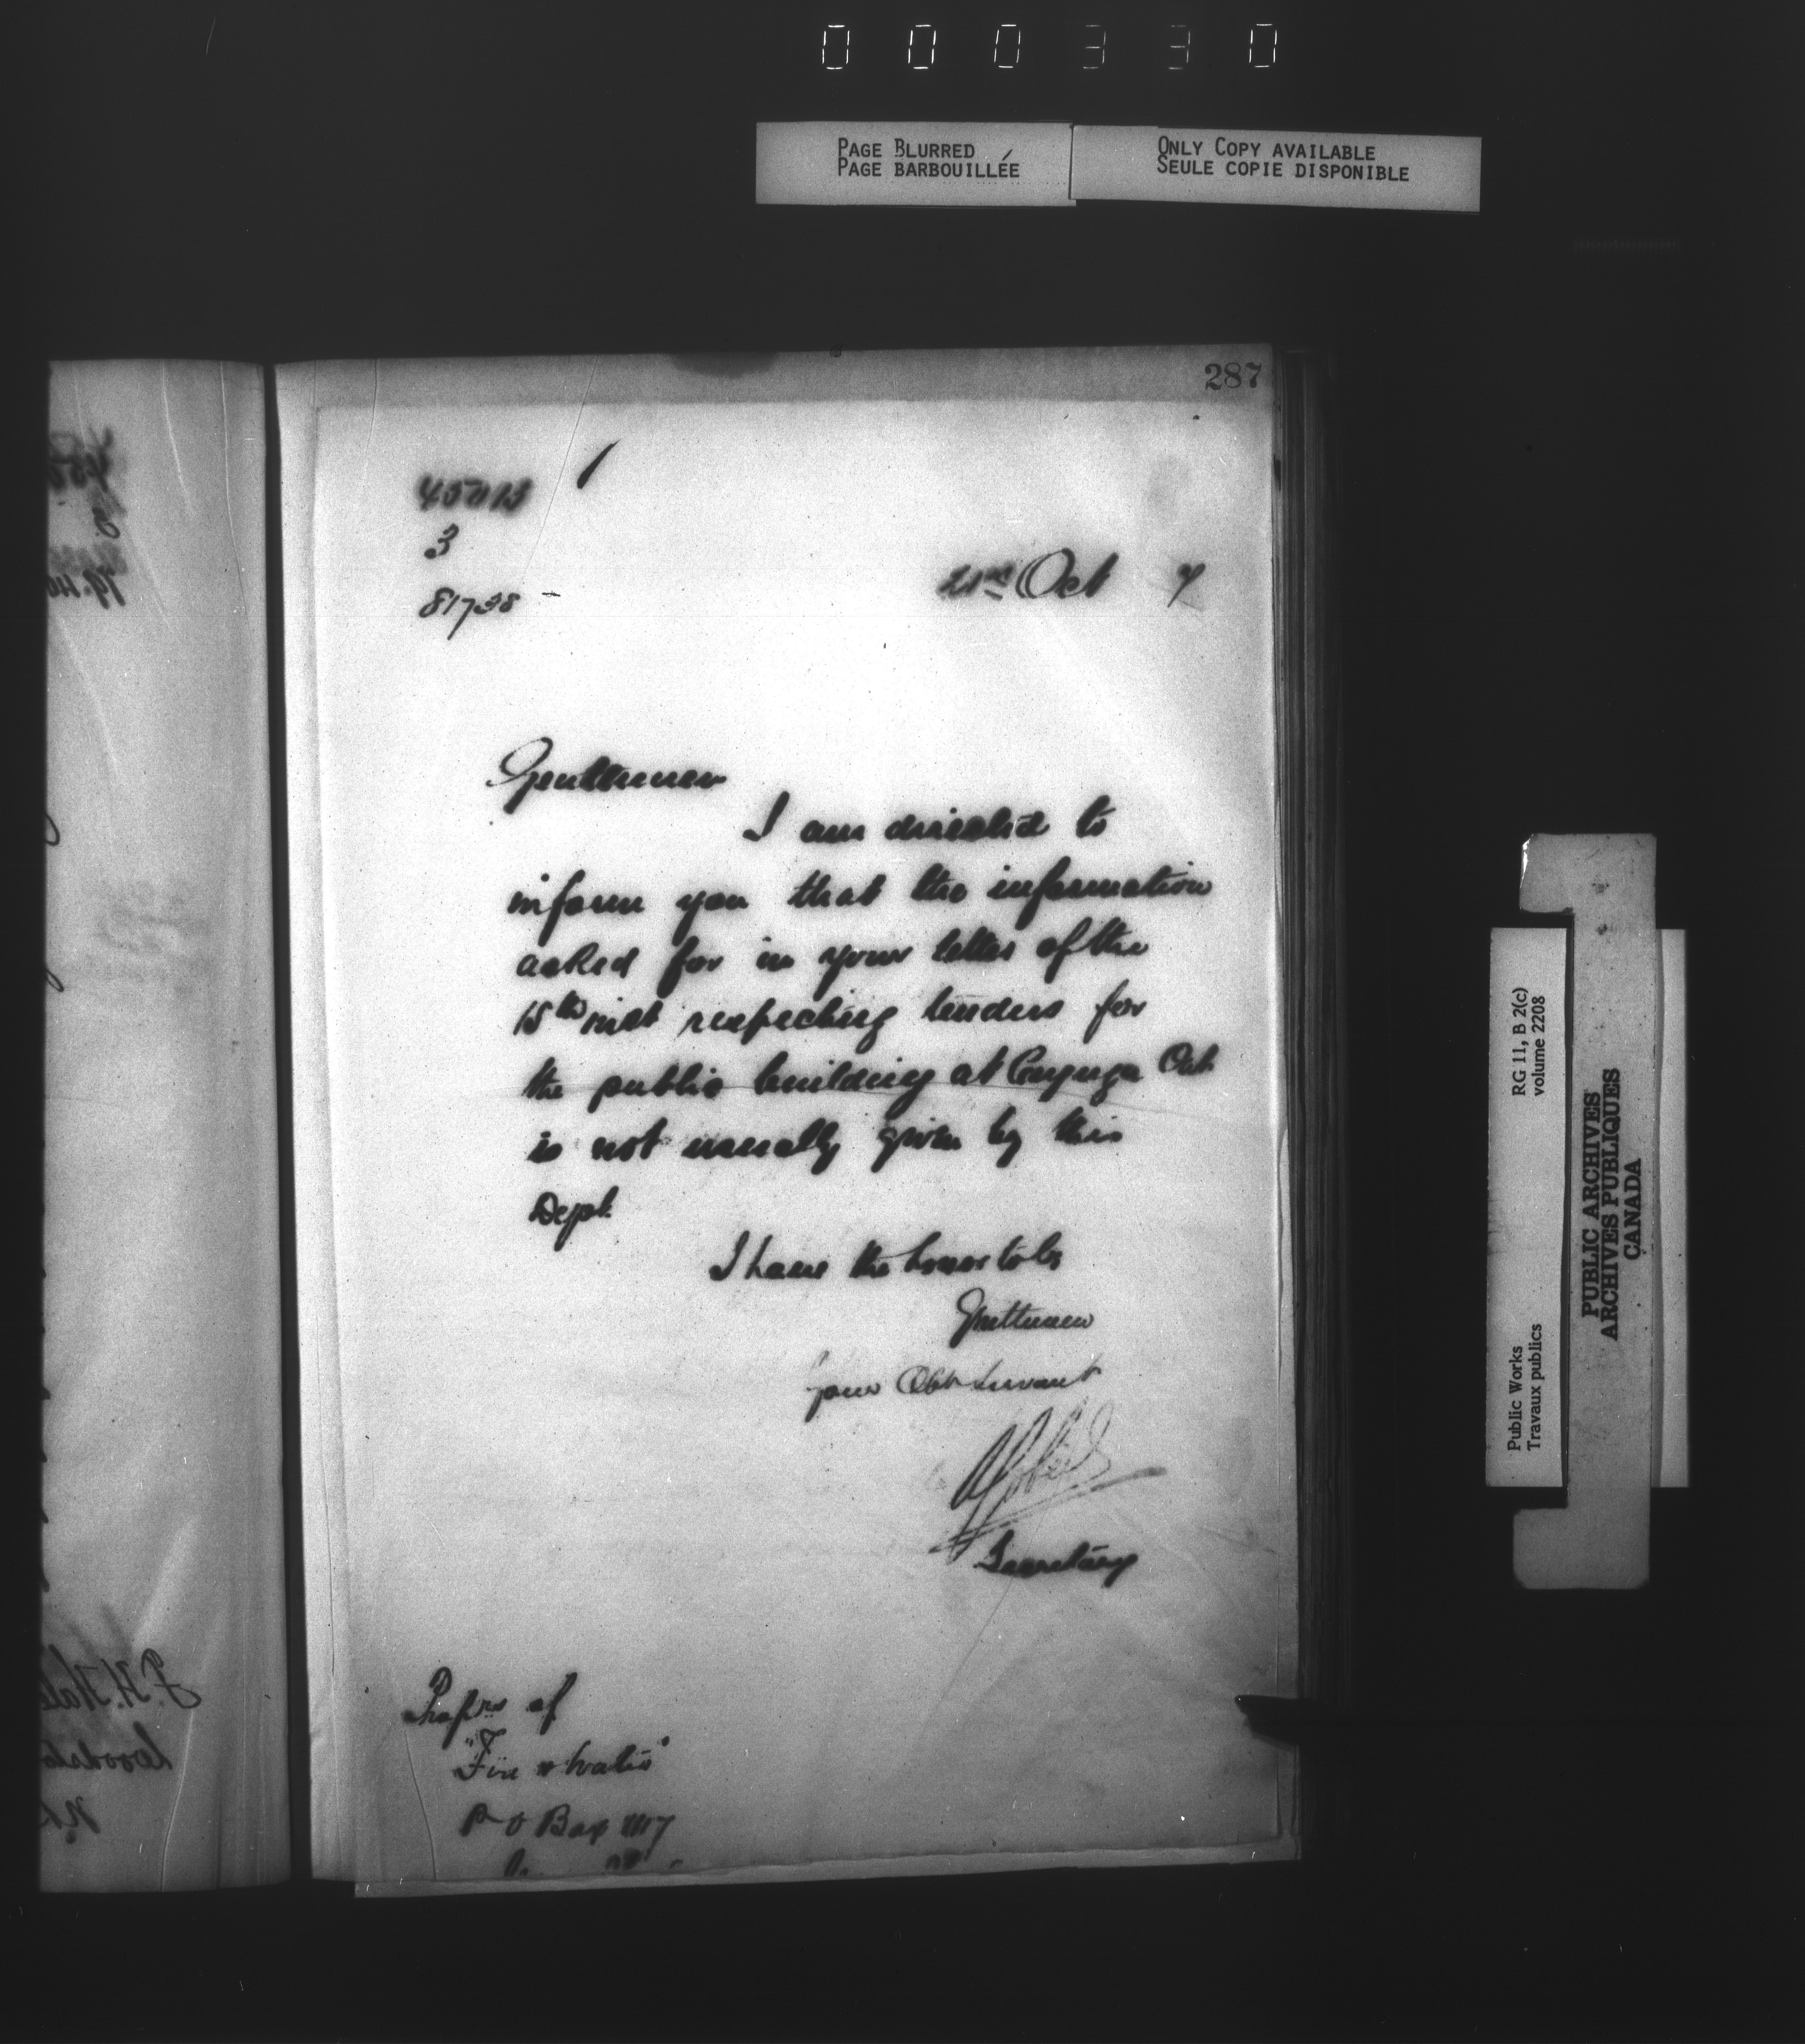 000330
PAGE BLURRED
PAGE BARBOUILLÉE
ONLY COPY AVAILABLE
SEULE COPIE DISPONIBLE
287
3
81738 -
21st Oct 7
Gentlemen
I am directed to
inform you that the information
asked for in your letter of the
15th inst respecting tenders for
the public building at Cayuga Ont
is not usually given by this
Dept.
I have the honor to be
Gentlemen
Your Obt Servant
Secretary
Proprs of
"Fire & Water"
P O Box
RG 11, B 2(c)
volume 2208
Public Works
Travaux publics
PUBLIC ARCHIVES
ARCHIVES PUBLIQUES
CANADA